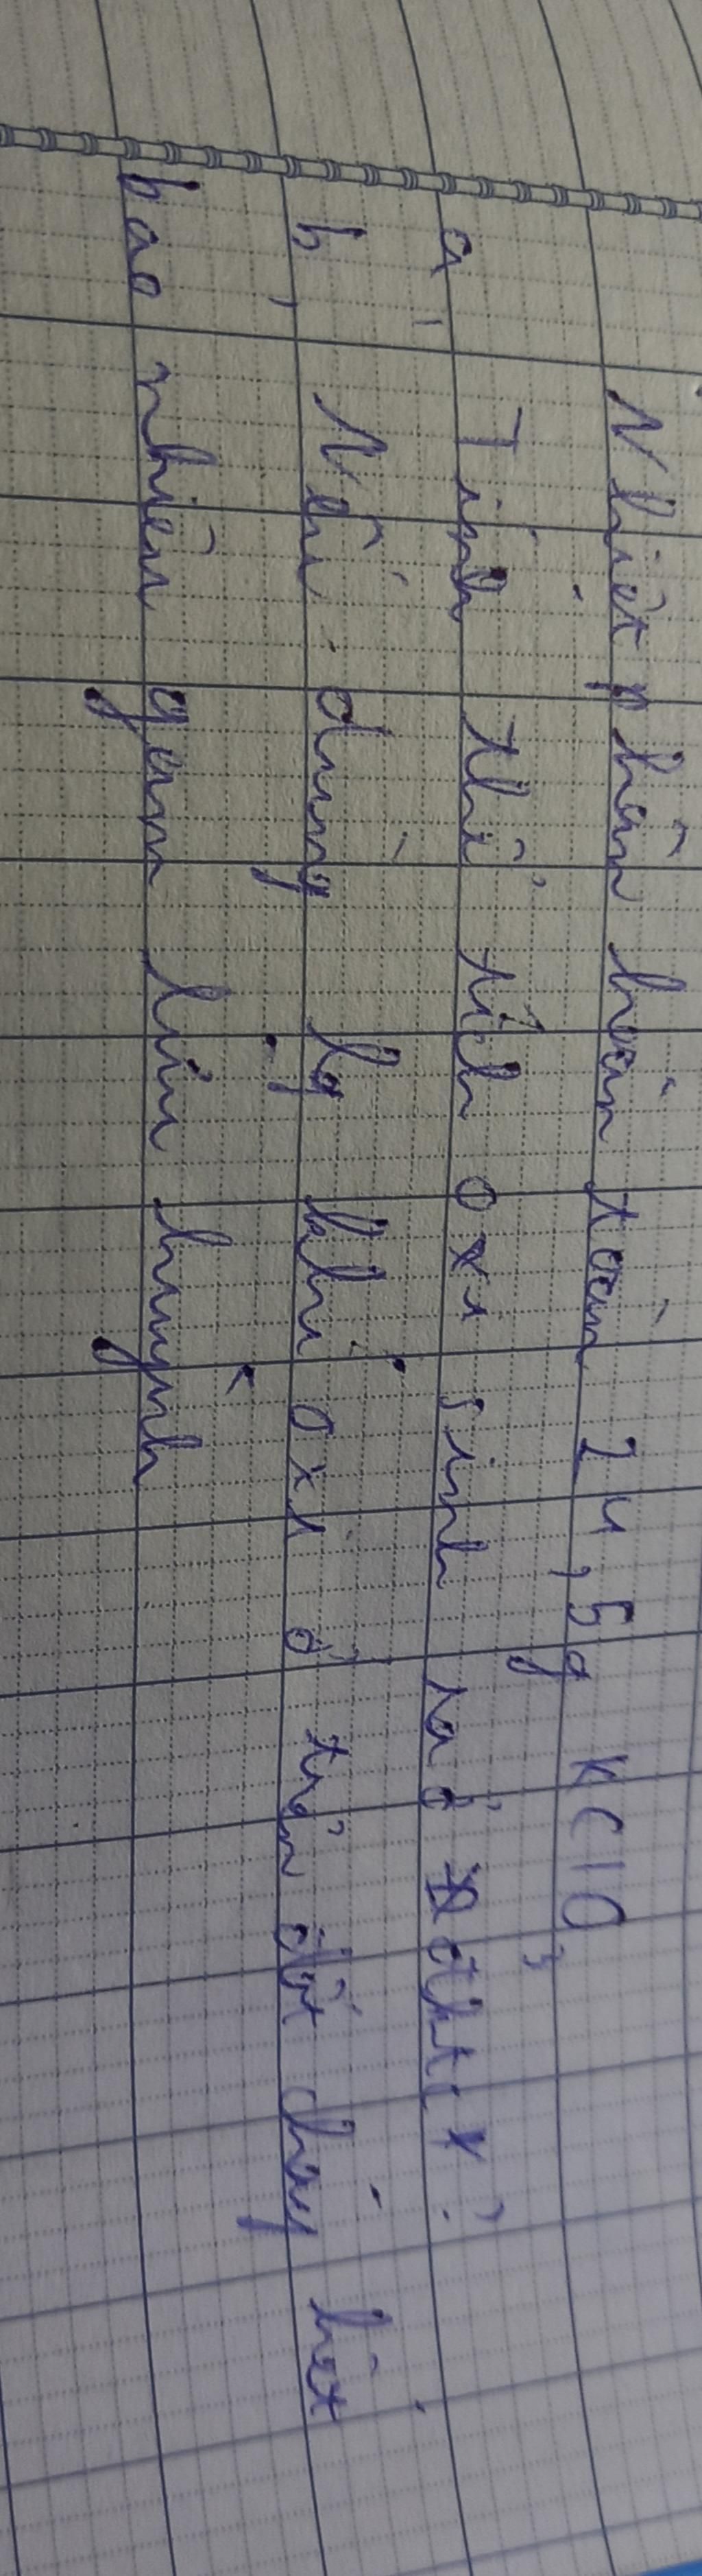 Nhiệt phân hoàn toàn 24,5g KClO3
a, Tính thể tích oxi sinh ra ở đktc?
b, Nếu dùng lg khí oxi ở trên đốt cháy hết
bao nhiêu gam lưu huỳnh